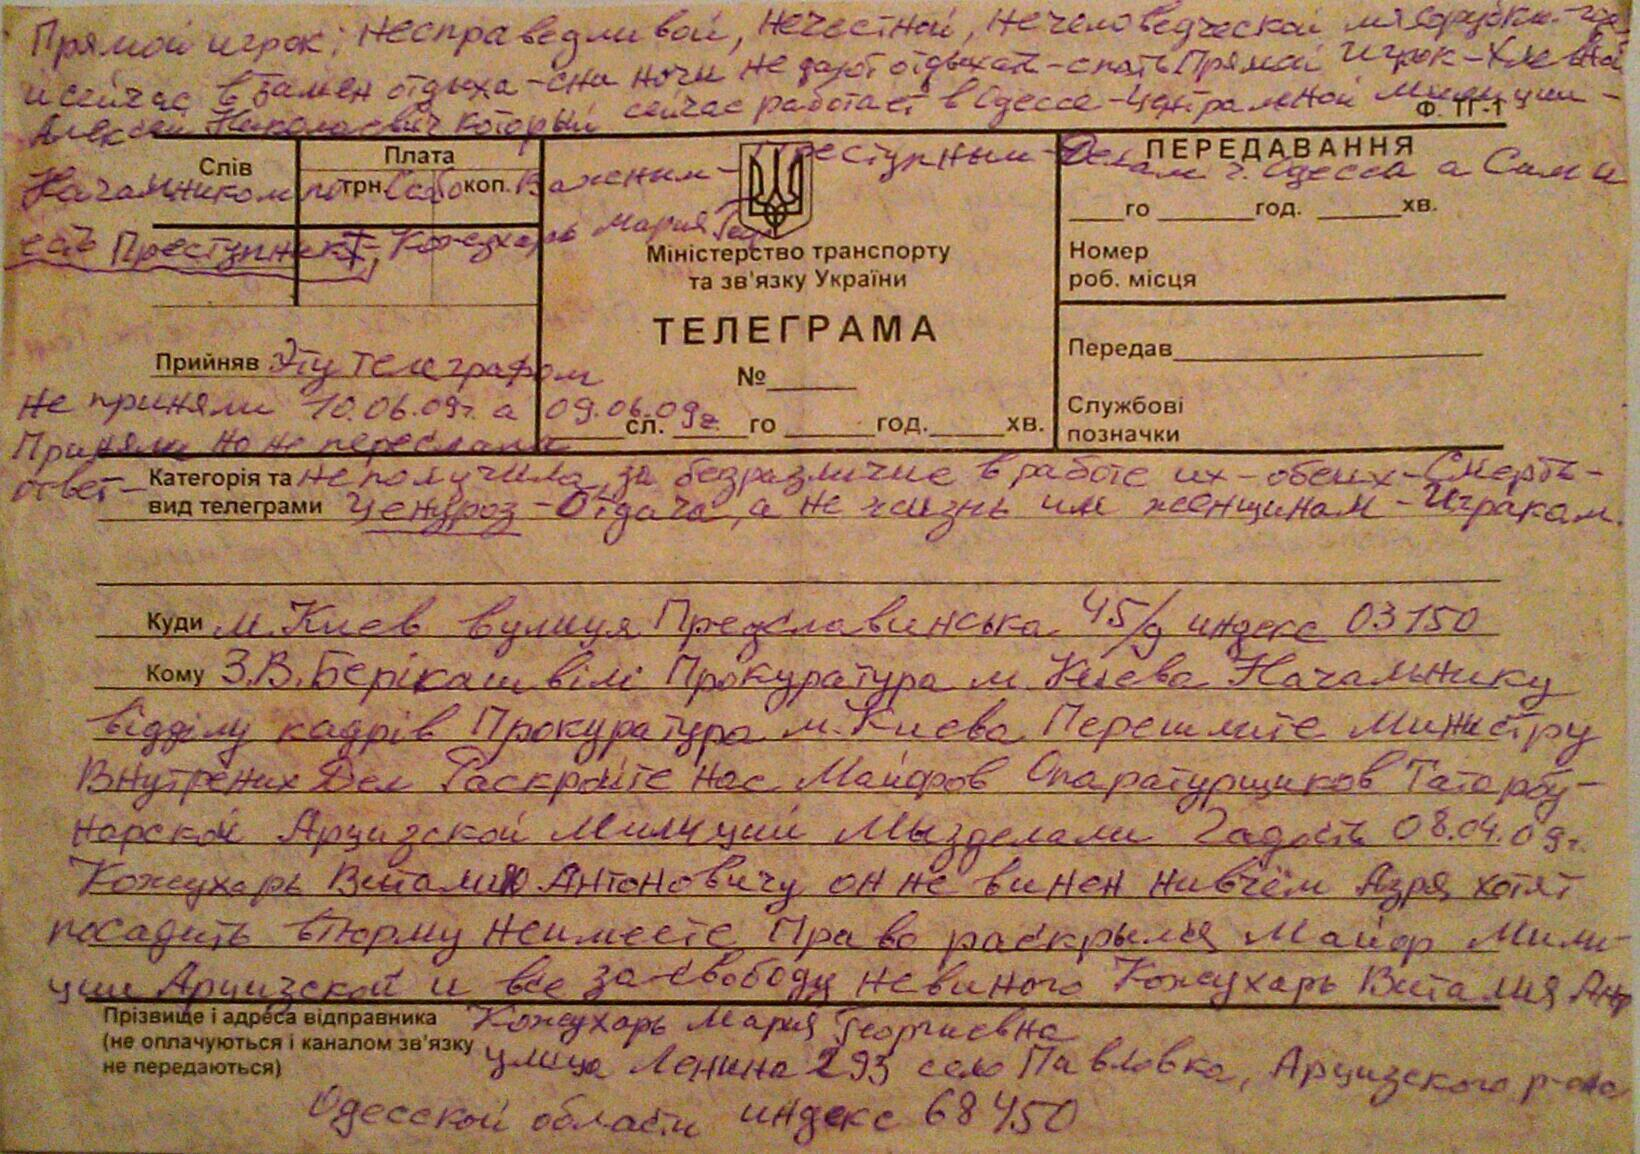 Прямой игрок; несправедливой, нечестной, нечеловедческой мясорубки.-
и сейчас взамен отдыха-сна ночи не дают отдыхать-спать Прямой Игрок-
Алексей Николаевич который сейчас работает в Одессе-Центральной Милиции-
Ф. ТГ-1
Слів
Плата
трн. коп.
Начальником по Особо Важным-Преступным-Делам г. Одесса а Сами
есть Преступник, Кожухарь Мария
Міністерство транспорту
та зв'язку України
ТЕЛЕГРАМА
№
ПЕРЕДАВАННЯ
го год. хв.
Номер
роб. місця
Передав
Службові
позначки
Прийняв Эту телеграфом
не приняли 10.06.09г. а 09.06.09г.
сл. го год. хв.
Приняли но не переслали
ответ-
Категорія та
вид телеграми
не получила, за безразличие в работе их-обеих-Смерть-
Ценуроз-Отдача, а не жизнь им женщинам-Игракам.
Куди м.Киев вулиця Предславинська 45/9 индекс 03150
Кому З.В.Берікашвілі Прокуратура м. Києва Начальнику
відділу кадрів Прокуратура м.Києва Перешлите Министру
Внутрених Дел Раскройте нас Майоров Опаратурщиков Татарбу-
нарской Арцизской Милиций Мы зделали Гадость 08.04.09г.
Кожухарь Виталию Антоновичу он не винен нивчём Азря хотят
посадить втюрму неимеете Право раскрылся Майор Мили-
ции Арцизской и все за свободу невиного Кожухарь Виталия Ант
Прізвище і адреса відправника
(не оплачуються і каналом зв'язку
не передаються)
Кожухарь Мария Георгиевна
улица Ленина 293 село Павловка, Арцизского р-она
Одесской области индекс 68450